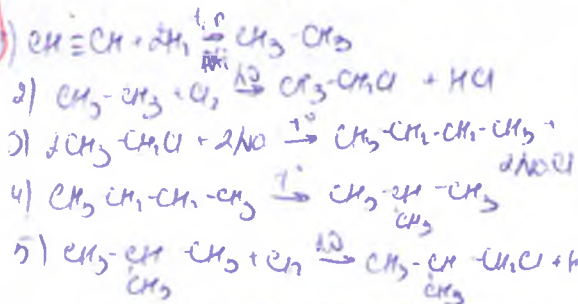 1) CH≡CH + 2H₂ →(t, p, Ni) CH₃-CH₃
2) CH₃-CH₃ + Cl₂ →(hν) CH₃-CH₂Cl + HCl
3) 2CH₃-CH₂Cl + 2Na →(t°) CH₃-CH₂-CH₂-CH₃ +
2NaCl
4) CH₃ CH₂-CH₂-CH₃ →(t°) CH₃-CH-CH₃
CH₃
5) CH₃-CH-CH₃ + Cl₂ →(hν) CH₃-CH-CH₂Cl + H
CH₃ CH₃